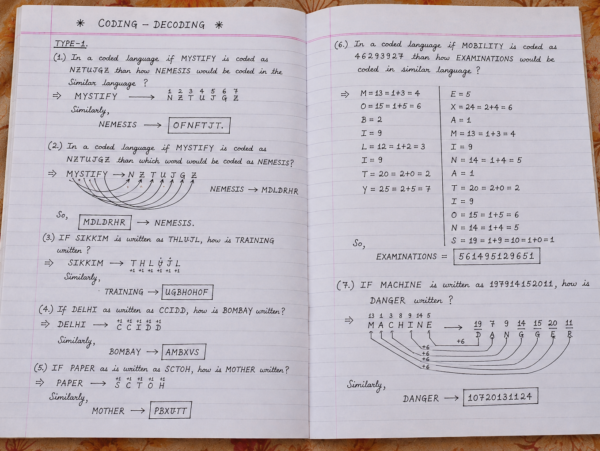 * CODING - DECODING *
TYPE-1.
(1.) In a coded language if MYSTIFY is coded as
NZTUJGZ than how NEMESIS would be coded in the
Similar language ?
1 2 3 4 5 6 7
⇒ MYSTIFY → N Z T U J G Z
Similarly,
NEMESIS → OFNFTJT.
(2.) In a coded language if MYSTIFY is coded as
NZTUJGZ than which word would be coded as NEMESIS?
⇒ MYSTIFY → N Z T U J G Z
NEMESIS → MDLDRHR
So,
MDLDRHR → NEMESIS.
(3.) IF SIKKIM is written as THLUJL, how is TRAINING
written ?
⇒ SIKKIM → T H L J J L
+1 ±1 +1 ±1 +1 ±1
Similarly,
TRAINING → UGBHOHOF
(4.) If DELHI as written as CCIDD, how is BOMBAY written?
⇒ DELHI → C C I D D
Similarly,
BOMBAY → AMBXVS
(5.) IF PAPER as is written as SCTOH, how is MOTHER written?
⇒ PAPER → S C T O H
Similarly,
MOTHER → PBXUTT
(6.) In a coded language if MOBILITY is coded as
46293927 than how EXAMINATIONS would be
coded in similar language ?
⇒ M = 13 = 1+3 = 4
O = 15 = 1+5 = 6
B = 2
I = 9
L = 12 = 1+2 = 3
I = 9
T = 20 = 2+0 = 2
Y = 25 = 2+5 = 7
E = 5
X = 24 = 2+4 = 6
A = 1
M = 13 = 1+3 = 4
I = 9
N = 14 = 1+4 = 5
A = 1
T = 20 = 2+0 = 2
I = 9
O = 15 = 1+5 = 6
N = 14 = 1+4 = 5
S = 19 = 1+9 = 10 = 1+0 = 1
So,
EXAMINATIONS = 561495129651
(7.) IF MACHINE is written as 197914152011, how is
DANGER written ?
13 1 3 8 9 14 5
⇒ M A C H I N E → 19 7 9 14 15 20 11
D A N G G E R
+6
+6
+6
+6
+6
Similarly,
DANGER → 10720131124